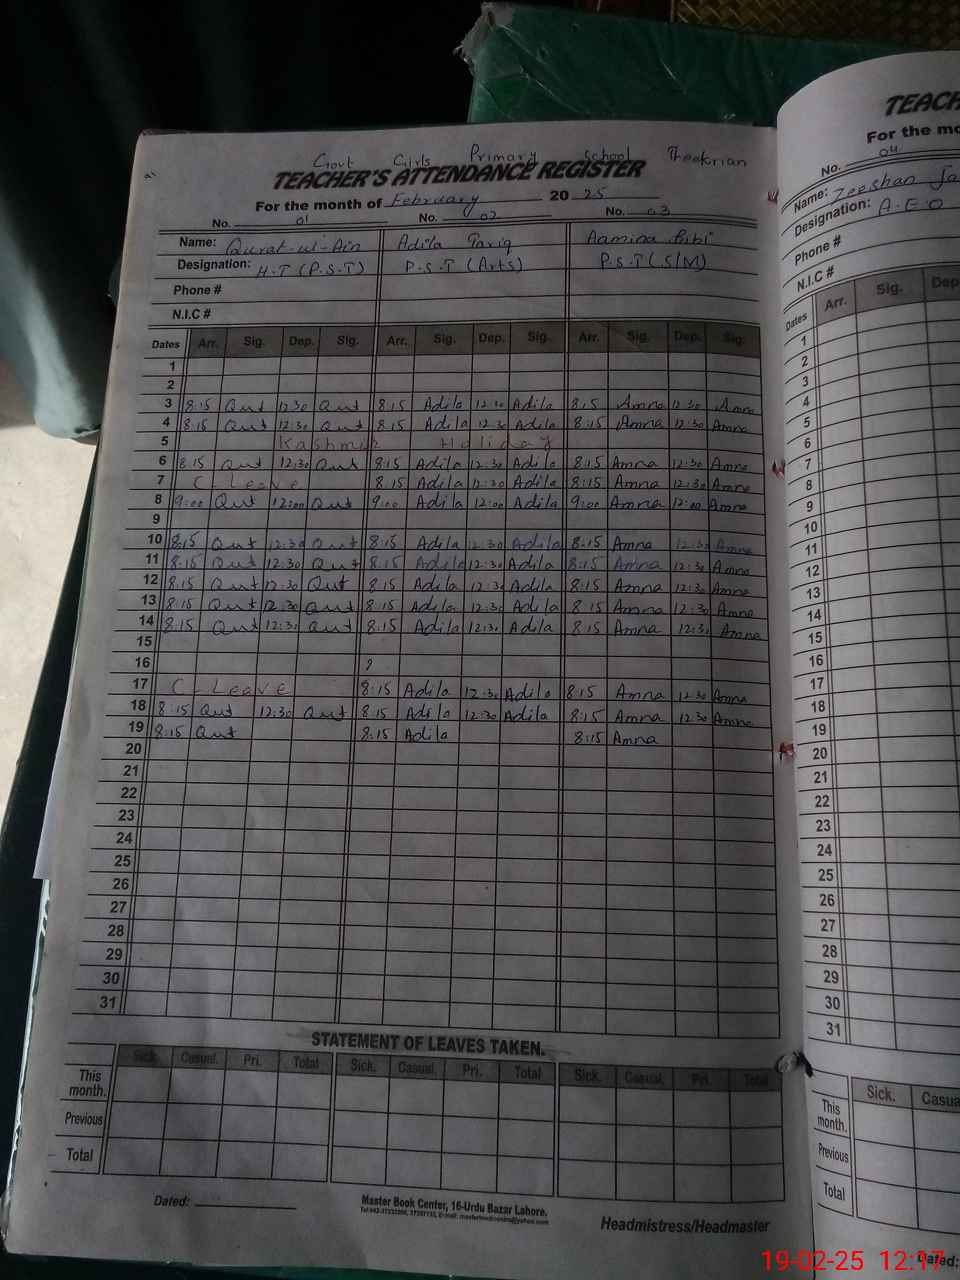 Govt Girls Primary School Theekrian
TEACHER'S ATTENDANCE REGISTER
For the month of February 2025
No. 01 No. 02 No. 03
Name: Qurat-ul-Ain Adila Tariq Aamina Bibi
Designation: H.T (P.S.T) P.S.T (Arts) P.S.T (S/M)
Phone #
N.I.C #
Dates Arr. Sig. Dep. Sig. Arr. Sig. Dep. Sig. Arr. Sig. Dep. Sig.
1
2
3 8:15 Qut 12:30 Qut 8:15 Adila 12:30 Adila 8:15 Amna 12:30 Amna
4 8:15 Qut 12:30 Qut 8:15 Adila 12:30 Adila 8:15 Amna 12:30 Amna
5 Kashmir Holiday
6 8:15 Qut 12:30 Qut 8:15 Adila 12:30 Adila 8:15 Amna 12:30 Amna
7 C-Leave 8:15 Adila 12:30 Adila 8:15 Amna 12:30 Amna
8 9:00 Qut 12:00 Qut 9:00 Adila 12:00 Adila 9:00 Amna 12:00 Amna
9
10 8:15 Qut 12:30 Qut 8:15 Adila 12:30 Adila 8:15 Amna 12:30 Amna
11 8:15 Qut 12:30 Qut 8:15 Adila 12:30 Adila 8:15 Amna 12:30 Amna
12 8:15 Qut 12:30 Qut 8:15 Adila 12:30 Adila 8:15 Amna 12:30 Amna
13 8:15 Qut 12:30 Qut 8:15 Adila 12:30 Adila 8:15 Amna 12:30 Amna
14 8:15 Qut 12:30 Qut 8:15 Adila 12:30 Adila 8:15 Amna 12:30 Amna
15
16
17 C-Leave 8:15 Adila 12:30 Adila 8:15 Amna 12:30 Amna
18 8:15 Qut 12:30 Qut 8:15 Adila 12:30 Adila 8:15 Amna 12:30 Amna
19 8:15 Qut 8:15 Adila 8:15 Amna
20
21
22
23
24
25
26
27
28
29
30
31
STATEMENT OF LEAVES TAKEN.
Sick. Casual. Pri. Total Sick. Casual. Pri. Total Sick. Casual. Pri. Total
This month.
Previous
Total
Dated:
Master Book Center, 16-Urdu Bazar Lahore.
Headmistress/Headmaster
TEACH
For the mo
No. 04
Name: Zeeshan Ja
Designation: A.E.O
Phone #
N.I.C #
Dates Arr. Sig. Dep
1
2
3
4
5
6
7
8
9
10
11
12
13
14
15
16
17
18
19
20
21
22
23
24
25
26
27
28
29
30
31
Sick. Casua
This month.
Previous
Total
Dated:
19-02-25 12:17